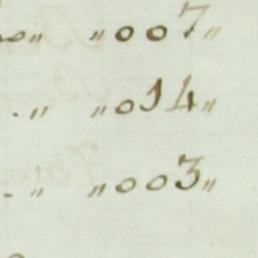 „ „007„
.„ „014„
-„ „003„